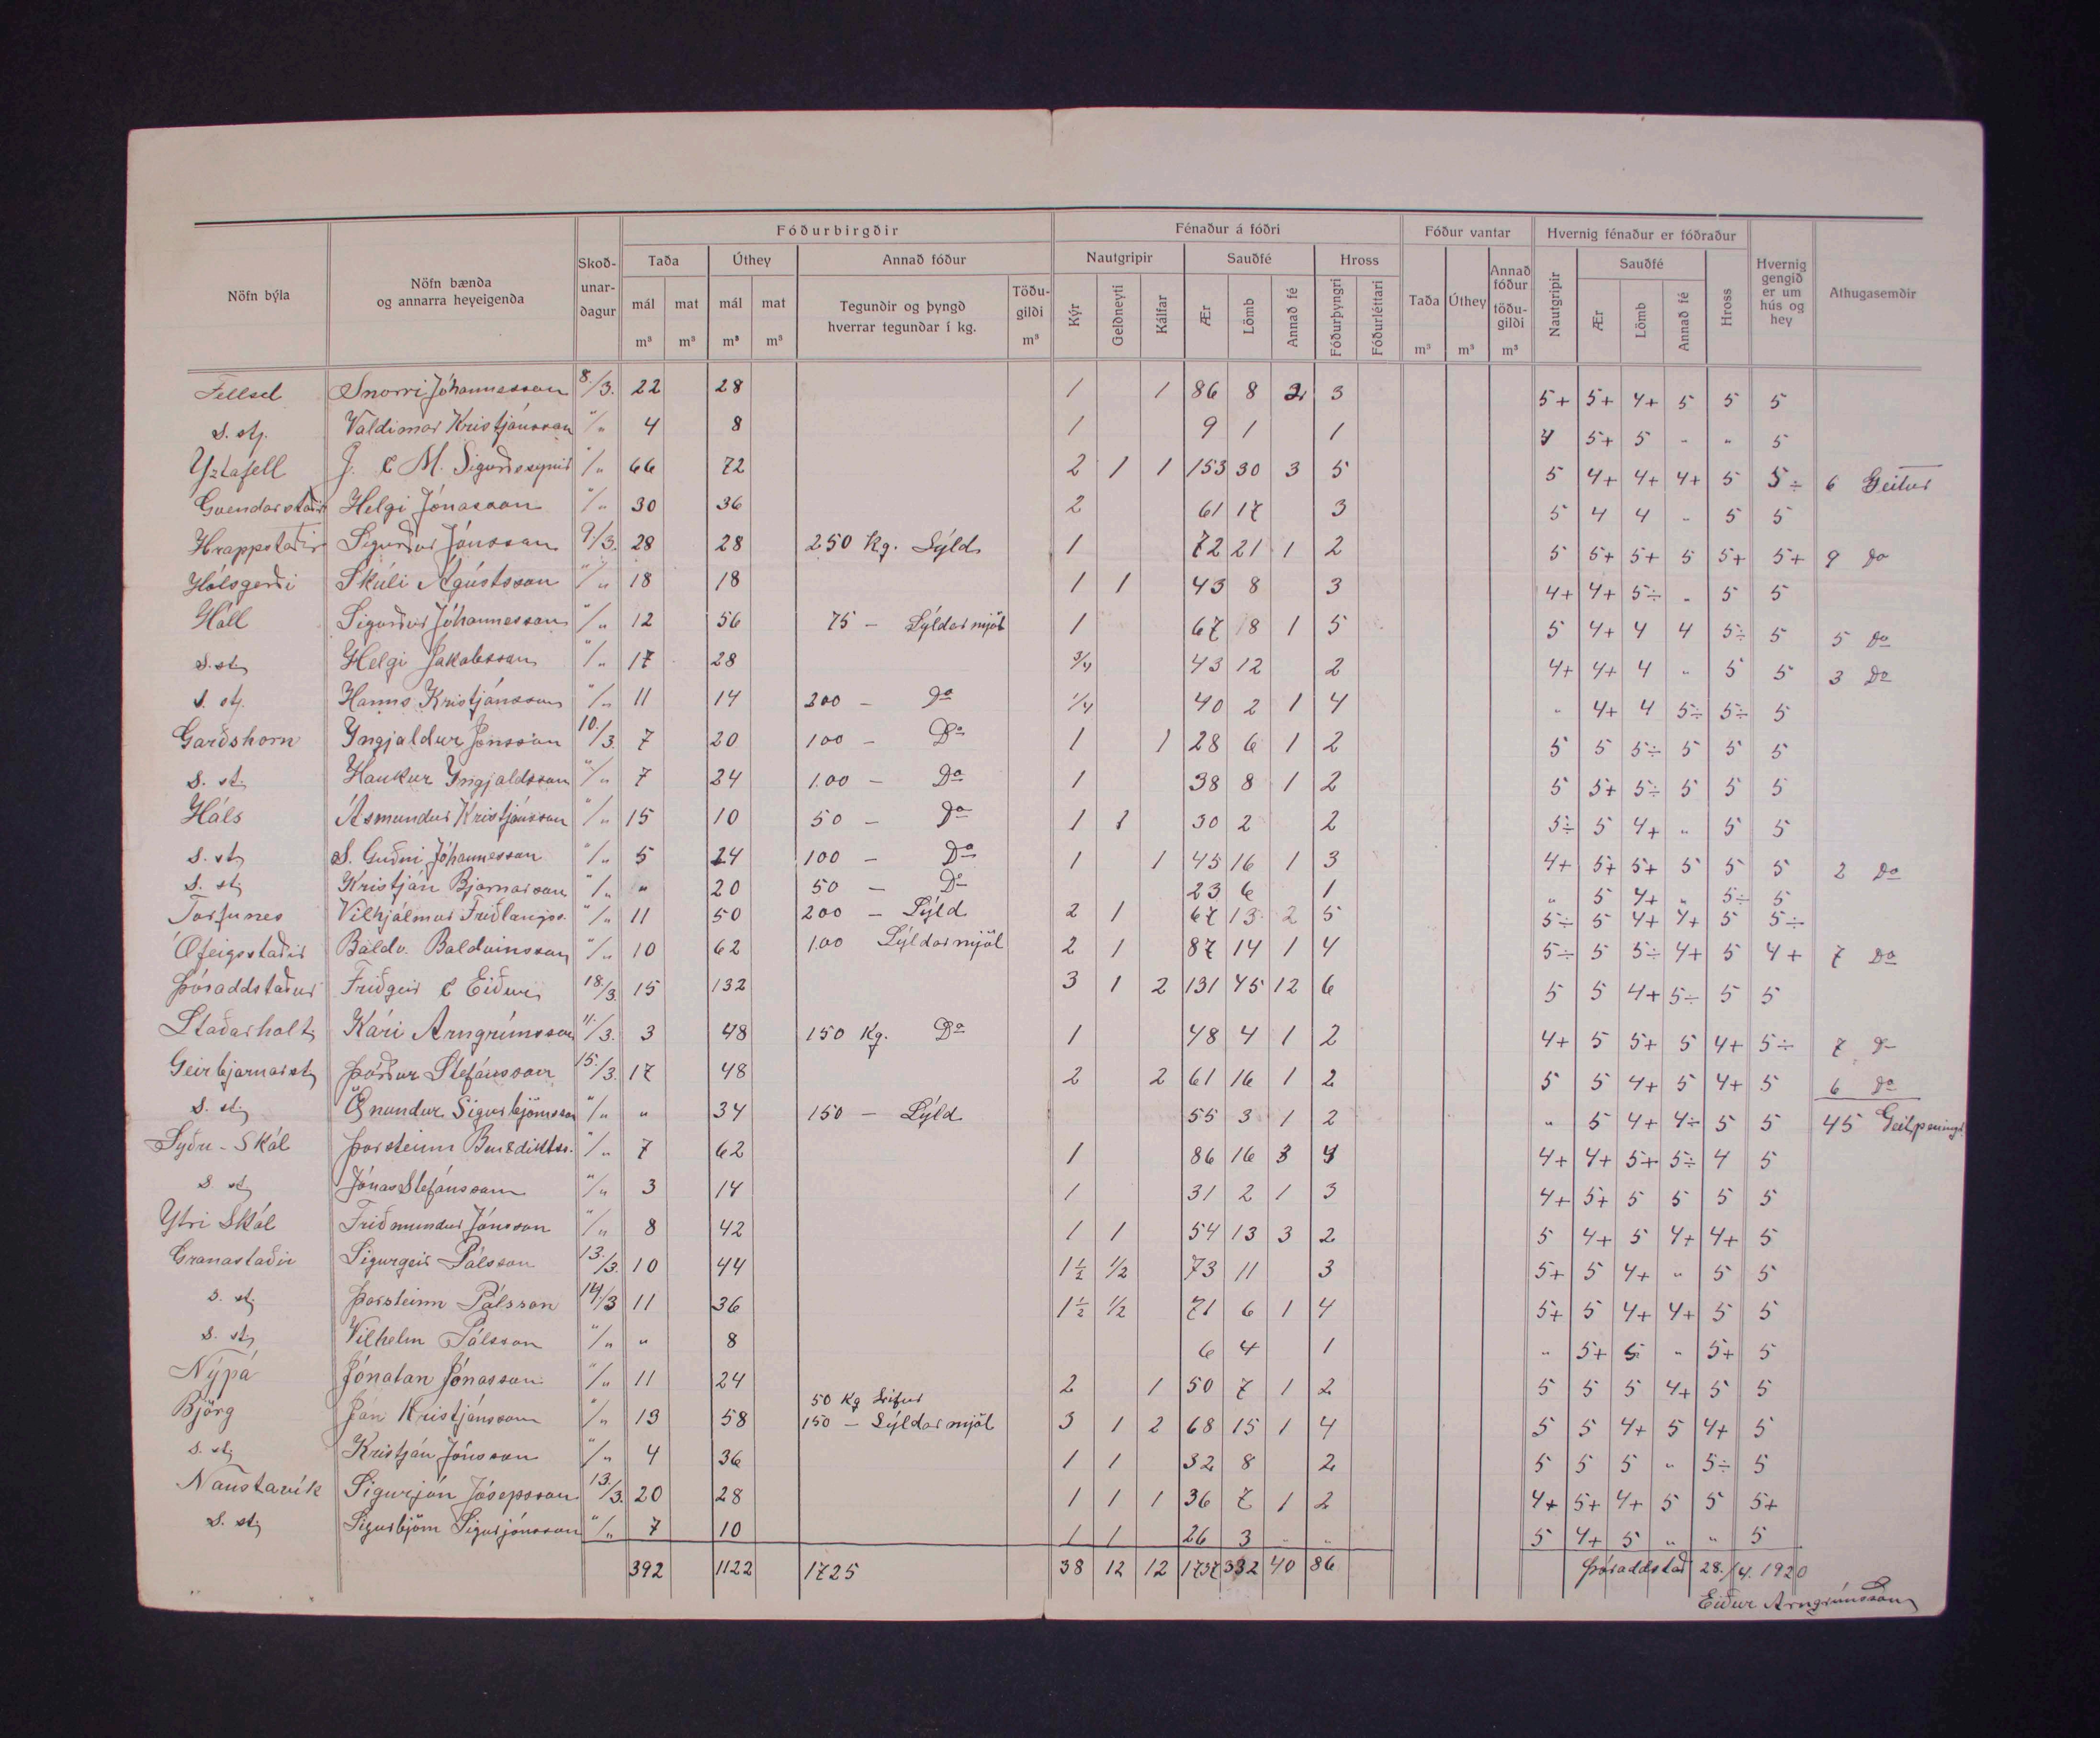 Fóðurbirgðir Fénaður á fóðri Fóður vantar Hvernig fénaður er fóðraður
Nöfn býla Nöfn bænda og annarra heyeigenda Skoðunardagur Taða Úthey Annað fóður Nautgripir Sauðfé Hross Taða Úthey Annað fóður töðugildi Nautgripir Sauðfé Hross Hvernig gengið er um hús og hey Athugasemdir
mál mat mál mat Tegundir og þyngd hverrar tegundar í kg. Töðugildi Kýr Geldneyti Kálfar Ær Lömb Annað fé Fóðurþyngri Fóðurléttari Ær Lömb Annað fé
m³ m³ m³ m³ m³ m³ m³ m³
Fellsel Snorri Jóhannesson 8./3. 22 28 1 1 86 8 2 3 5+ 5+ 4+ 5 5 5
s. stj. Valdimar Kristjánsson "/" 4 8 1 9 1 1 4 5+ 5 " " 5
Yztafell J. & M. Sigurðssynir "/" 66 72 2 1 1 153 30 3 5 5 4+ 4+ 4+ 5 5÷ 6 Geitur
Gvendarstaðir Helgi Jónasson "/" 30 36 2 61 17 3 5 4 4 " 5 5
Hrappstaðir Sigurður Jónsson 9./3. 28 28 250 Kg. Sýld 1 72 21 1 2 5 5+ 5+ 5 5+ 5+ 9 do
Hólsgerði Skúli Ágústsson "/" 18 18 1 1 43 8 3 4+ 4+ 5÷ " 5 5
Háll Sigurður Jóhannesson "/" 12 56 75 – Sýldarmjöl 1 67 18 1 5 5 4+ 4 4 5÷ 5 5 Do
s. stj Helgi Jakobsson "/" 17 28 3/4 43 12 2 4+ 4+ 4 " 5 5 3 Do
s. stj. Hanns Kristjánsson "/" 11 14 200 – Do 1/4 40 2 1 4 " 4+ 4 5÷ 5÷ 5
Garðshorn Yngjaldur Jónsson 10./3. 7 20 100 – Do 1 1 28 6 1 2 5 5 5÷ 5 5 5
s. stj Haukur Yngjaldsson "/" 7 24 100 – Do 1 38 8 1 2 5 5+ 5÷ 5 5 5
Háls Ásmundur Kristjánsson "/" 15 10 50 – Do 1 1 30 2 2 5÷ 5 4+ " 5 5
s. stj S. Guðni Jóhannesson "/" 5 24 100 – Do 1 1 45 16 1 3 4+ 5+ 5+ 5 5 5 2 Do
s. stj Kristján Bjarnarson "/" " 20 50 – Do 23 6 1 " 5 4+ " 5÷ 5
Torfunes Vilhjálmur Friðlaugss. "/" 11 50 200 – Sýld 2 1 67 13 2 5 5÷ 5 4+ 4+ 5 5÷
Ófeigsstaðir Baldv. Baldvinsson "/" 10 62 100 Sýldarmjöl 2 1 87 14 1 4 5÷ 5 5÷ 4+ 5 4+ 7 Do
Þóraddstaður Friðgeir & Eiður 18./3. 15 132 3 1 2 131 45 12 6 5 5 4+ 5÷ 5 5
Staðarholt Kári Arngrímsson 11./3. 3 48 150 Kg. Do 1 48 4 1 2 4+ 5 5+ 5 4+ 5÷ 7 D
Geirbjarnarst Þórður Stefánsson 15./3. 17 48 2 2 61 16 1 2 5 5 4+ 5 4+ 5 6 do
s. stj Önundur Sigurbjörnsson "/" " 34 150 – Sýld 55 3 1 2 " 5 4+ 4÷ 5 5 45 Geitpening
Syðri-Skál Þorsteinn Benediktss. "/" 7 62 1 86 16 3 4 4+ 4+ 5+ 5÷ 4 5
s. stj Jónas Stefánsson "/" 3 14 1 31 2 1 3 4+ 5+ 5 5 5 5
Ytri Skál Friðmundur Jónsson "/" 8 42 1 1 54 13 3 2 5 4+ 5 4+ 4+ 5
Granastaðir Sigurgeir Pálsson 13./3. 10 44 1½ ½ 73 11 3 5+ 5 4+ " 5 5
s. stj Þorsteinn Pálsson 14./3 11 36 1½ ½ 71 6 1 4 5+ 5 4+ 4+ 5 5
s. stj Vilhelm Pálsson "/" " 8 6 4 1 " 5+ 5 " 5+ 5
Nýpá Jónatan Jónasson "/" 11 24 2 1 50 7 1 2 5 5 5 4+ 5 5
50 Kg
Björg Jón Kristjánsson "/" 19 58 150 – Sýldarmjöl 3 1 2 68 15 1 4 5 5 4+ 5 4+ 5
s. stj Kristján Jónsson "/" 4 36 1 1 32 8 2 5 5 5 " 5÷ 5
Naustavík Sigurjón Jósepsson 13./3. 20 28 1 1 1 36 7 1 2 4+ 5+ 4+ 5 5 5+
s. stj Sigurbjörn Sigurjónsson "/" 7 10 1 1 26 3 " " 5 4+ 5 " " 5
392 1122 1725 38 12 12 1737 332 40 86 Þóraddstað 28./4. 1920
Eiður Arngrímsson